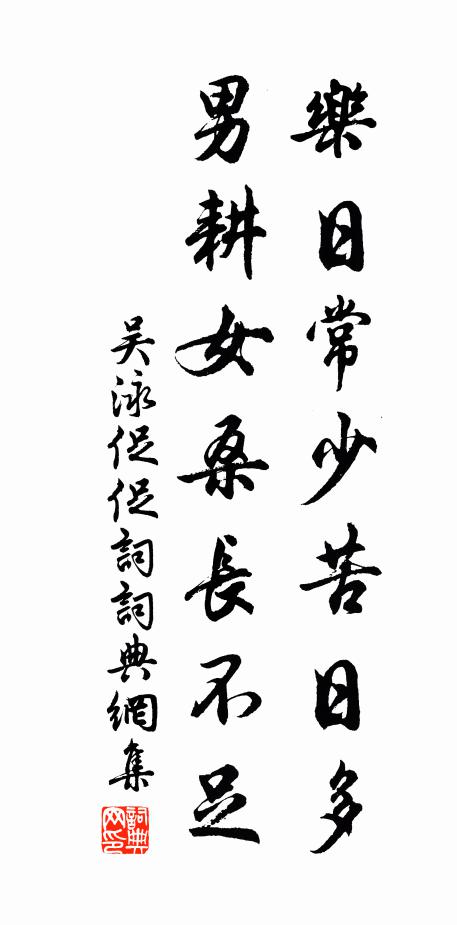 樂日常少苦日多
男耕女桑長不足
吳泳促促詞詞典網集
詞典网印